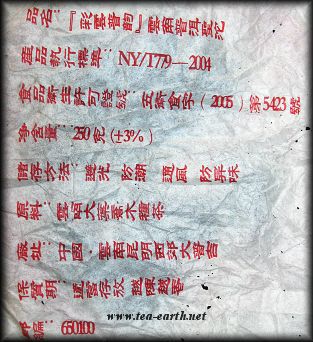 品名：『彩雲 韵』雲南普洱 沱
產品執行標準：NY/T779—2004
食品衛生許可證號：五衛食字（2005）第5423號
净含量：250克（±3%）
儲存方法：避光 防潮 通風 防異味
原料：雲南大葉喬木種茶
廠址：中國·雲南昆明西郊大普吉
保質期：適宜存放 越陳越香
郵編：650100
www.tea-earth.net